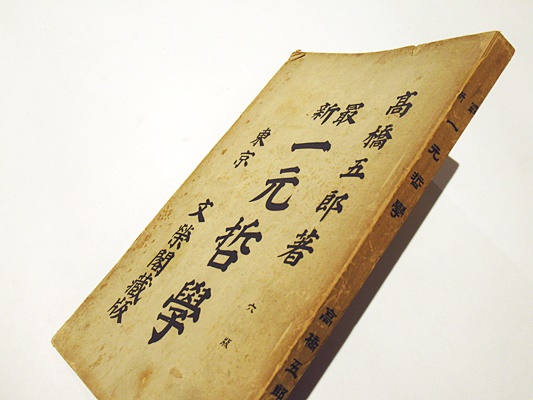 高橋五郎著
最新
一元哲學
六版
東京
文榮閣藏版
最新
一元哲學
高橋五郎